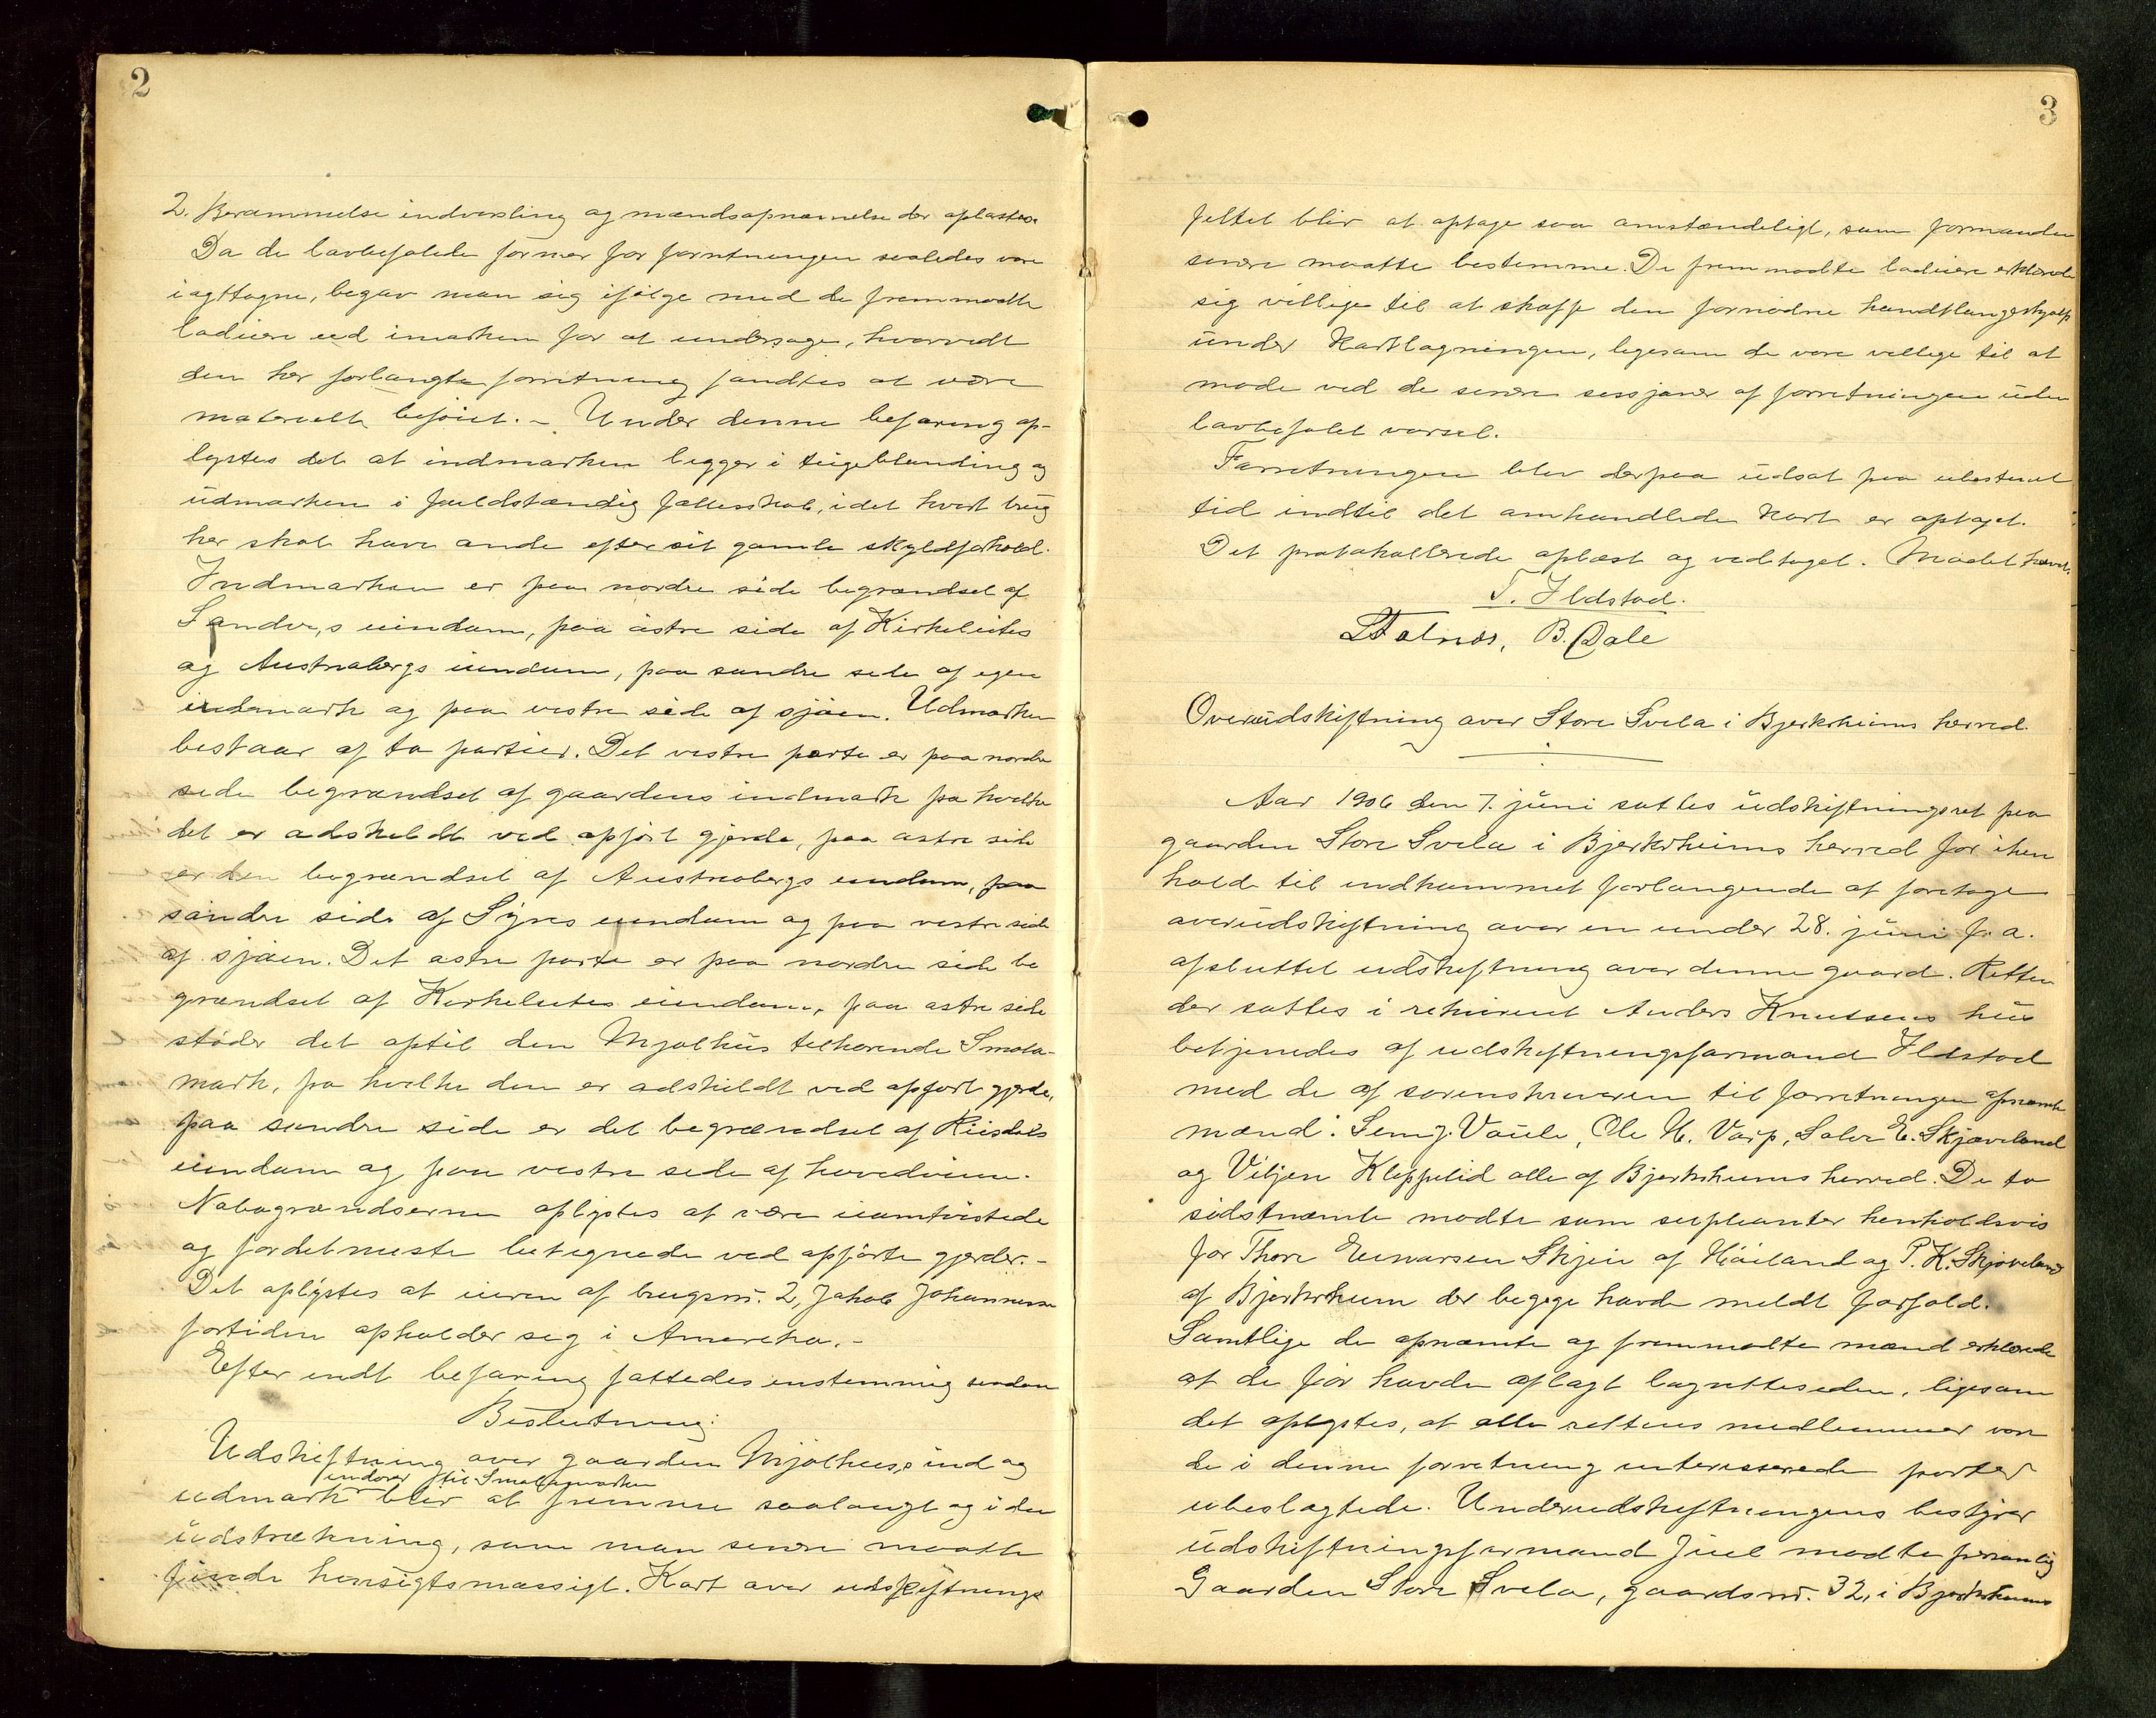 2
2. Berammelse indvarsling og mændsopnævnelse der oplæstes.
Da de lavbefalede former for forretningen saaledes vare
iagttagne, begav man sig ifølge med de fremmødte
lodeiere ud i marken for at undersøge, hvorvidt
den her forlangte forretning fandtes at være
materielt beføiet. – Under denne befaring op-
lystes det at indmarken ligger i teigeblanding og
udmarken i fuldstændig fællesskab, idet hvert brug
her skal have andel efter sit gamle skyldforhold.
Indmarken er paa nordre side begrændset af
Sande,s eiendom, paa østre side af Kirkeleites
og Austrabergs eiendom, paa søndre side af egen
udmark og paa vestre side af sjøen. Udmarken
bestaar af to partier. Det vestre parti er paa nordre
side begrændset af gaardens indmark fra hvilken
det er adskildt ved opført gjerde, paa østre side
er den begrændset af Austrabergs eiendom, paa
søndre side af Syres eiendom og paa vestre side
af sjøen. Det østre parti er paa nordre side be
grændset af Kirkeleites eiendom, paa østre side
støder det optil den Mjølhus tilhørende Smola-
mark, fra hvilken den er adskildt ved opført gjerde,
paa søndre side er det begrændset af
eiendom og paa vestre side af
Nabogrændserne oplystes at være uomtvistede
og fordetmeste betegnede ved opførte gjerder. –
Det oplystes at eieren af brugsnr. 2, Jakob Johannessen
fortiden opholder sig i Amerika. –
Efter endt befaring fattedes enstemmig saadan
Beslutning:
Udskiftning over gaarden Mjølhus,s ind og
indover til Smolamarken
udmark blir at fremme saalangt og i den
udstrækning, som man senere maatte
finde hensigtsmæssigt. Kart over udskiftnings
3
feltet blir at optage saa omstændeligt, som formanden
senere maatte bestemme. De fremmødte lodeiere erklærede
sig villige til at skaffe den fornødne haandtlangerhjælp
under Kartlægningen, ligesom de vare villige til at
møde ved de senere sessjoner af forretningen uden
lavbefalet varsel.
Forretningen blev derpaa udsat paa ubestemt
tid indtil det omhandlede Kart er optaget.
Det protokollerede oplæst og vedtaget. Mødet hævet.
T. Ildstad.
Falnes, B. Dale
Overudskiftning over Store Svela i Bjerkrheims herred.
Aar 1906 den 7. juni sattes udskiftningsret paa
gaarden Store Svela i Bjerkrheims herred for i hen
hold til indkommet forlangende at foretage
overudskiftning over en under 28. juni f. a.
afsluttet udskiftning over denne gaard. Retten
der sattes i rekvirent Anders Knutsens hus
betjenedes af udskiftningsformand Ildstad
med de af sorenskriveren til forretningen opnævnte
mænd: Sem J. Vaule, Ole H. Vasp, Salve E. Skjæveland
og Viljen Kleppelid alle af Bjerkrheims herred. De to
sidstnævnte mødte som suppleanter henholdsvis
for Thore Einarsen Skjeie af Høiland og P. K. Skjæveland
af Bjerkrheim der begge havde meldt forfald.
Samtlige de opnævnte og fremmødte mænd erklærede
at de før havde aflagt lagretteseden, ligesom
det oplystes, at alle rettens medlemmer vare
de i denne forretning interesserede parter
ubeslægtede. Underudskiftningens bestyrer
udskiftningsformand Juel mødte personlig
Gaarden Store Svela, gaardsnr. 32, i Bjerkrheims